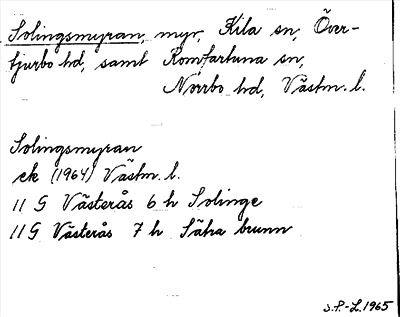 Solingsmyran, myr, Kila sn, Över-
tjurbo hd, samt Romfartuna sn,
Norrbo hd, Västm. l.
Solingsmyran
ek (1964) Västm. l.
11 G Västerås 6 h Solinge
11 G Västerås 7 h Sätra brunn
S.P.-L. 1965